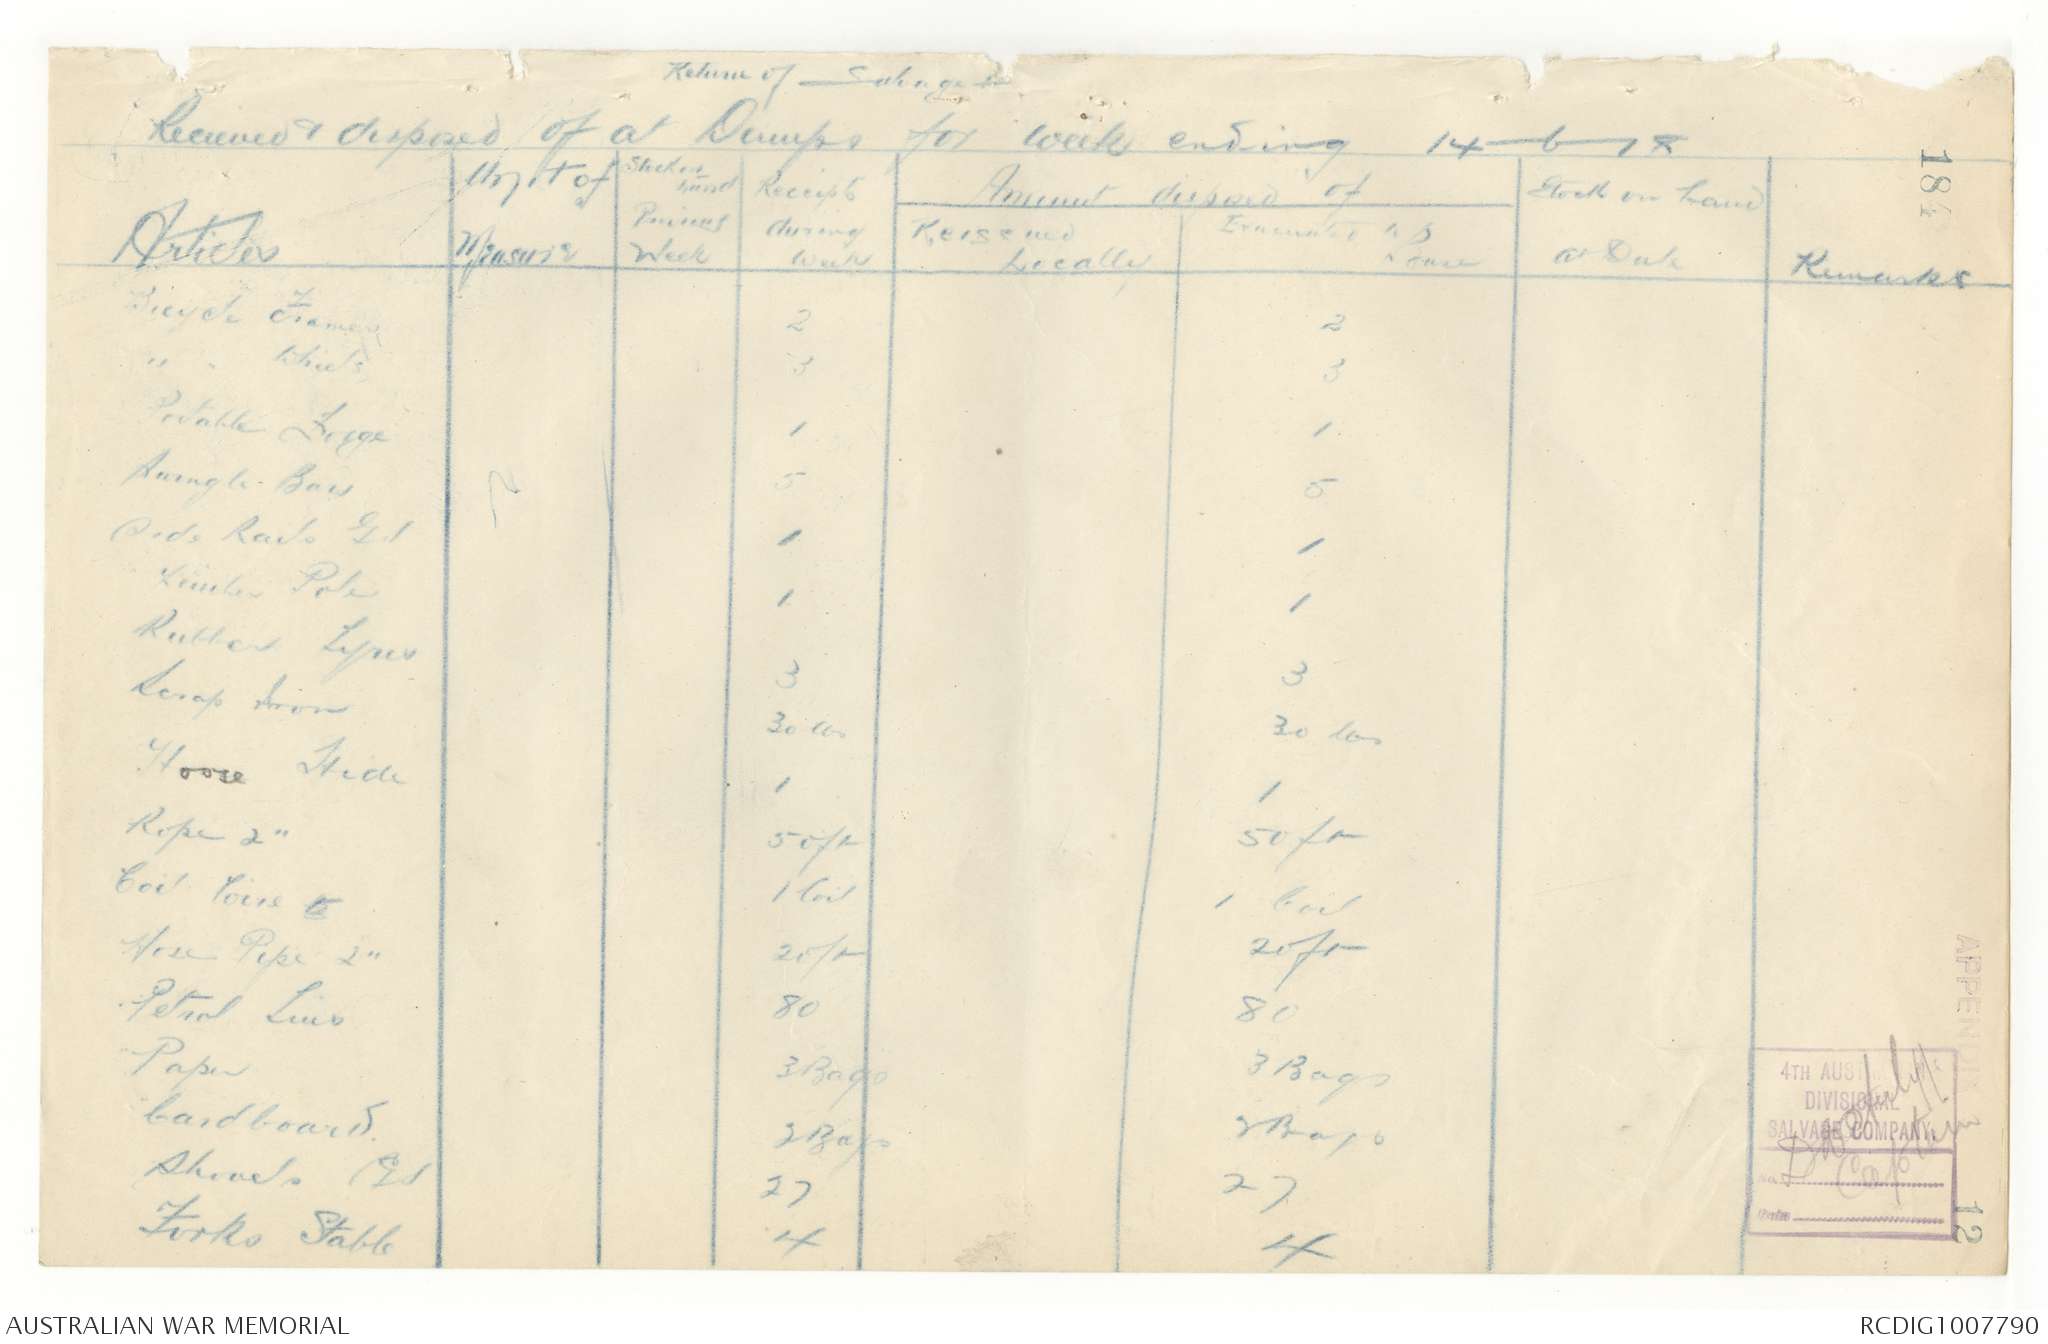 Return of Salvage
Received & disposed of at Dumps for week ending 14-6-18
Articles
Unit of
Measure
Stock on
hand
Previous
Week
Receipts
during
week
Amount disposed of
Reissued
Locally
Evacuated to
Base
Stock on hand
at Date
Remarks
Bicycle Frames 2 2
" " Wheels 3 3
Portable Forge 1 1
Swingle Bars 5 5
Side Rails G.S 1 1
Limber Pole 1 1
Rubber Tyres 3 3
Scrap Iron 30 lbs 30 lbs
Horse Hide 1 1
Rope 2" 50 ft 50 ft
Coil 1 Coil 1 Coil
Hose Pipe 2" 20 ft 20 ft
Petrol Tins 80 80
Paper 3 Bags 3 Bags
Cardboard 2 Bags 2 Bags
Shovels G.S 27 27
Forks Stable 4 4
184
APPENDIX 3
4TH AUST.
DIVISIONAL
SALVAGE COMPANY
No.
Date
Captain
12
AUSTRALIAN WAR MEMORIAL
RCDIG1007790